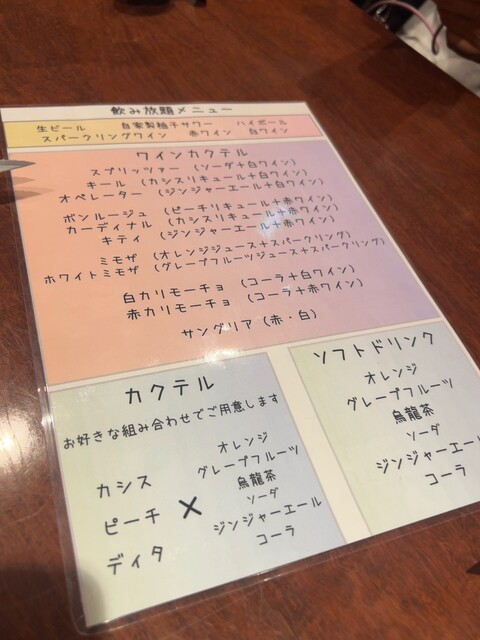 飲み放題メニュー
生ビール 自家製柚子サワー ハイボール
スパークリングワイン 赤ワイン 白ワイン
ワインカクテル
スプリッツァー (ソーダ+白ワイン)
キール (カシスリキュール+白ワイン)
オペレーター (ジンジャーエール+白ワイン)
ボンルージュ (ピーチリキュール+赤ワイン)
カーディナル (カシスリキュール+赤ワイン)
キティ (ジンジャーエール+赤ワイン)
ミモザ (オレンジジュース+スパークリング)
ホワイトミモザ (グレープフルーツジュース+スパークリング)
白カリモーチョ (コーラ+白ワイン)
赤カリモーチョ (コーラ+赤ワイン)
サングリア(赤・白)
カクテル
お好きな組み合わせでご用意します
カシス
ピーチ
ディタ
×
オレンジ
グレープフルーツ
烏龍茶
ソーダ
ジンジャーエール
コーラ
ソフトドリンク
オレンジ
グレープフルーツ
烏龍茶
ソーダ
ジンジャーエール
コーラ